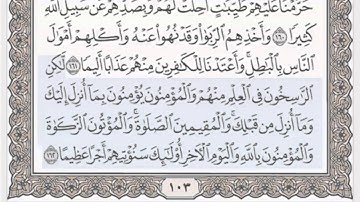 حَرَّمْنَا عَلَيْهِمْ طَيِّبَٰتٍ أُحِلَّتْ لَهُمْ وَبِصَدِّهِمْ عَن سَبِيلِ ٱللَّهِ
كَثِيرًا ١٦٠ وَأَخْذِهِمُ ٱلرِّبَوٰا۟ وَقَدْ نُهُوا۟ عَنْهُ وَأَكْلِهِمْ أَمْوَٰلَ
ٱلنَّاسِ بِٱلْبَٰطِلِ ۚ وَأَعْتَدْنَا لِلْكَٰفِرِينَ مِنْهُمْ عَذَابًا أَلِيمًا ١٦١ لَّٰكِنِ
ٱلرَّٰسِخُونَ فِى ٱلْعِلْمِ مِنْهُمْ وَٱلْمُؤْمِنُونَ يُؤْمِنُونَ بِمَآ أُنزِلَ إِلَيْكَ
وَمَآ أُنزِلَ مِن قَبْلِكَ ۚ وَٱلْمُقِيمِينَ ٱلصَّلَوٰةَ ۚ وَٱلْمُؤْتُونَ ٱلزَّكَوٰةَ
وَٱلْمُؤْمِنُونَ بِٱللَّهِ وَٱلْيَوْمِ ٱلْءَاخِرِ أُو۟لَٰٓئِكَ سَنُؤْتِيهِمْ أَجْرًا عَظِيمًا ١٦٢
١٠٣